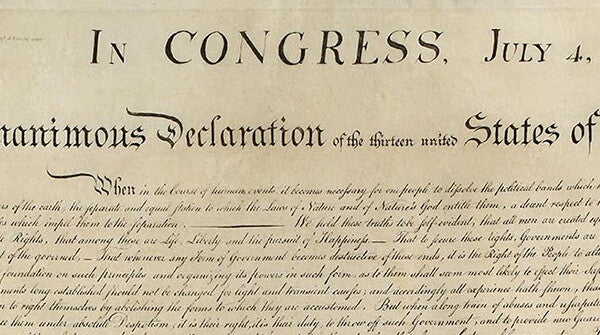 In CONGRESS, July 4,
nanimous Declaration of the thirteen united States of
When in the Course of human events, it becomes necessary for one people to dissolve the political bands which
of the earth, the separate and equal station to which the Laws of Nature and of Nature's God entitle them, a decent respect to
which impel them to the separation. We hold these truths to be self-evident, that all men are created
Rights, that among these are Life, Liberty and the pursuit of Happiness.— That to secure these rights, Governments are
of the governed,— That whenever any Form of Government becomes destructive of these ends, it is the Right of the People to
foundation on such principles and organizing its powers in such form, as to them shall seem most likely to effect their
long established should not be changed for light and transient causes; and accordingly all experience hath shewn, that
to right themselves by abolishing the forms to which they are accustomed. But when a long train of abuses and
them under absolute Despotism, it is their right, it is their duty, to throw off such Government, and to provide new